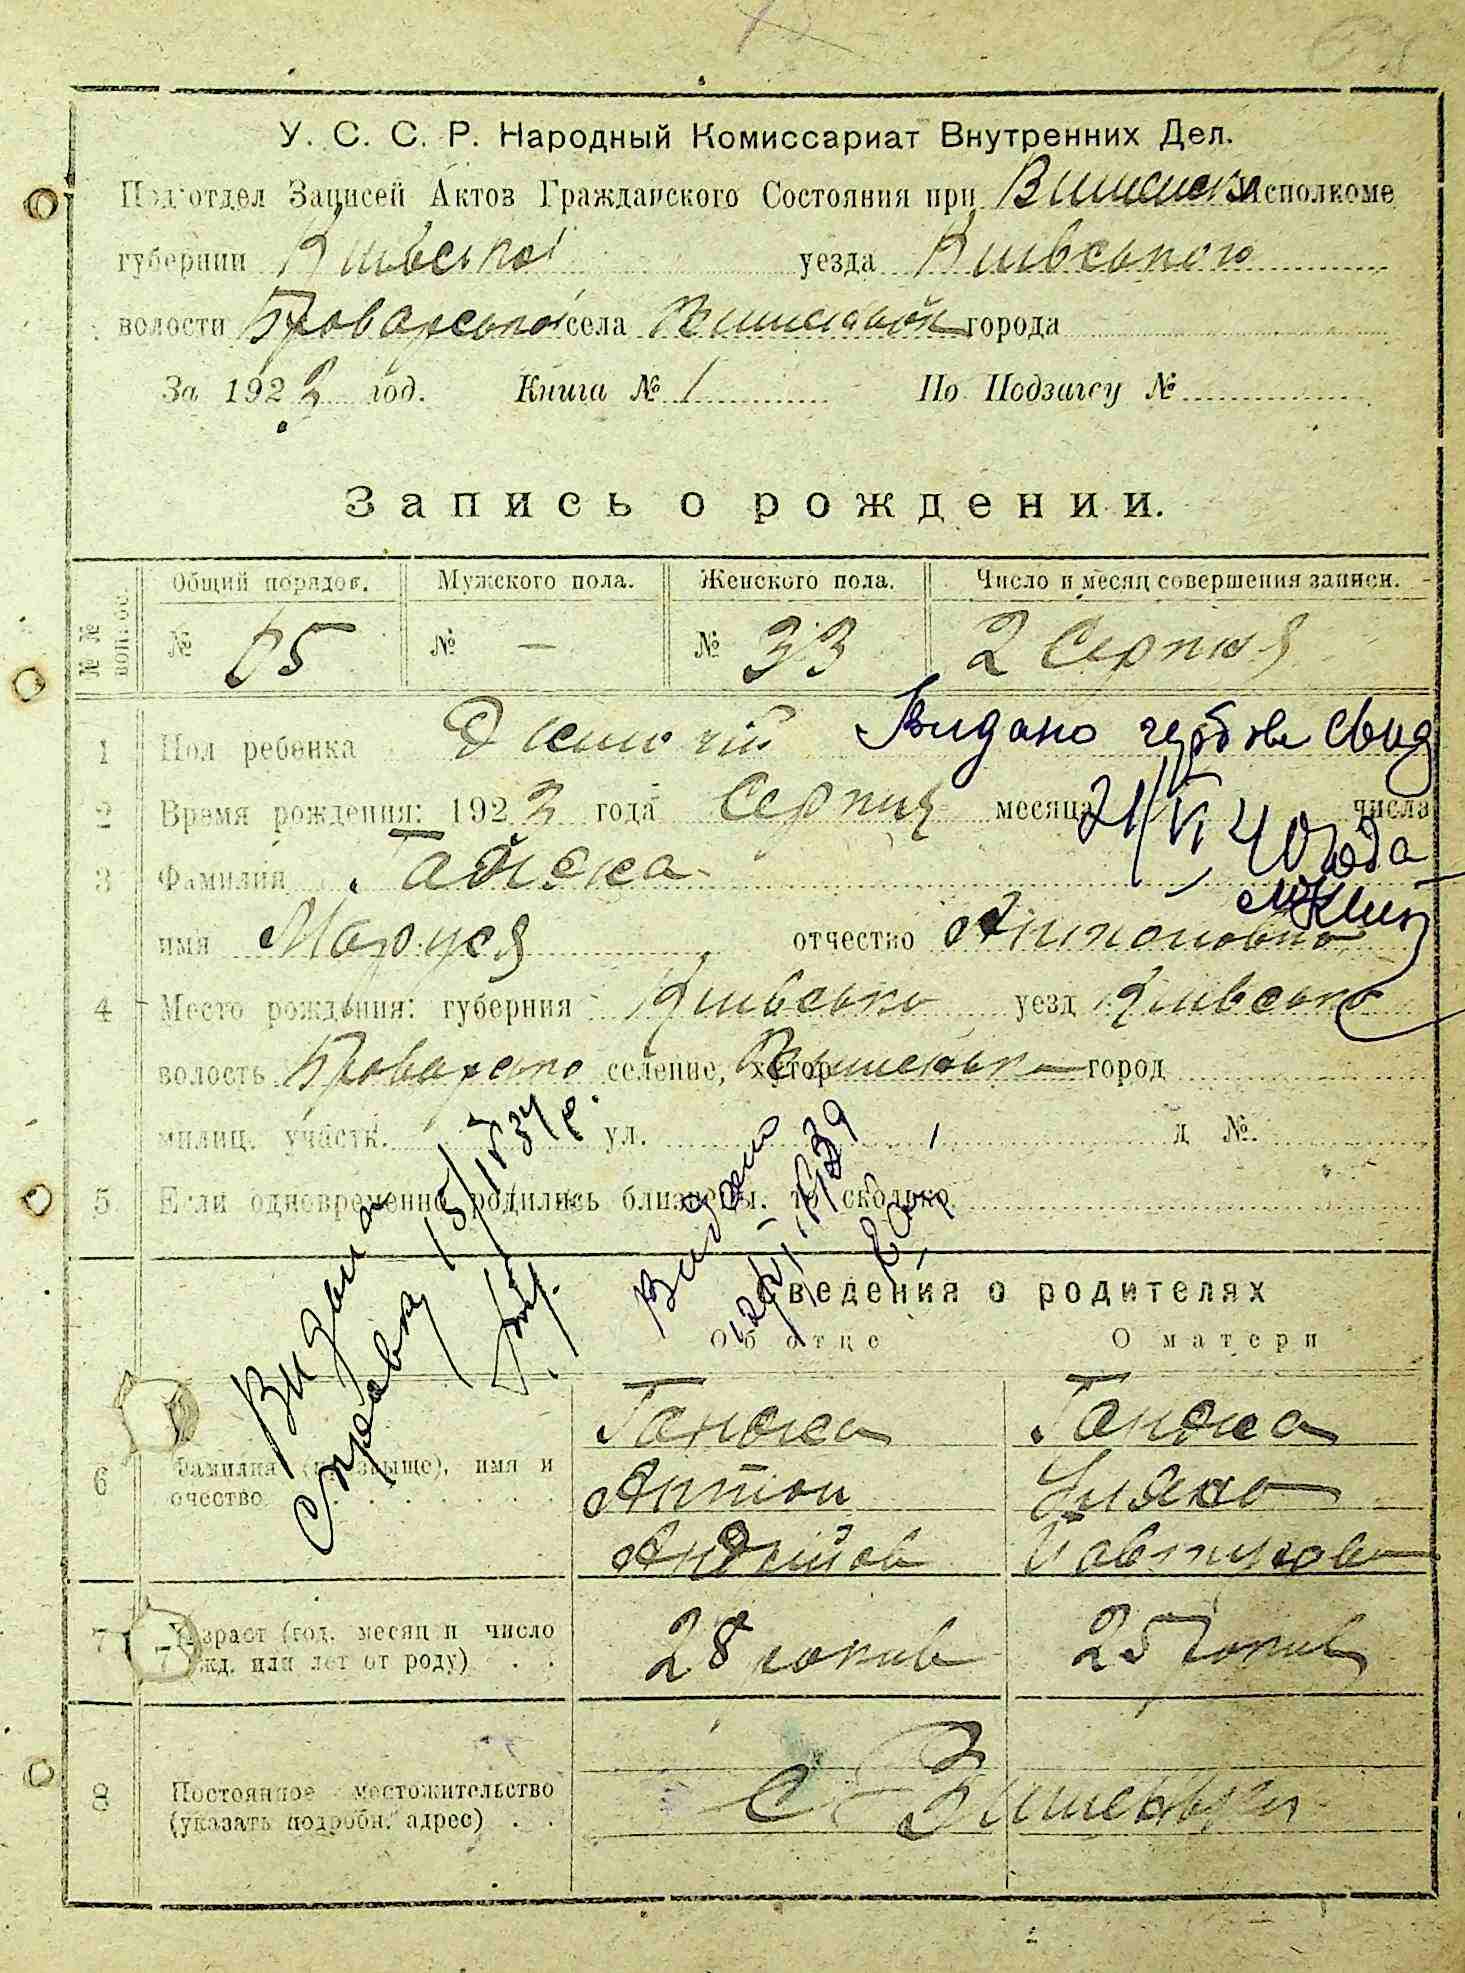 У. С. С. Р. Народный Комиссариат Внутренних Дел.
Под'отдел Записей Актов Гражданского Состояния при Исполкоме
губернии Київської уезда Київського
волости Броварської села города
За 1923 год. Книга № 1 По Подзагсу №
Запись о рождении.
№ № воп. об. Общий порядов. Мужского пола. Женского пола. Число и месяц совершения записи.
№ 65 № — № 33 2 Серпня
1 Пол ребенка Видано гербове свид
2 Время рождения: 1923 года Серпня месяца числа
21/VI 40 года
3 Фамилия
имя Маруся отчество Антоновна
4 Место рождения: губерния Київсько уезд Київсько
волость Броварсько селение, хутор город
милиц. участк. ул. д №.
5 Если одновременно родились близнецы, то сколько
Видана справка 15/IV 34 р.
Видано
Сведения о родителях
Об отце О матери
6 Фамилия (прозвыще), имя и очество
Ганжа Ганжа
Антон
7 Возраст (год, месяц и число рожд. или лет от роду)
28 років 25 років
8 Постоянное местожительство (указать подробн. адрес)
С Вишеньки